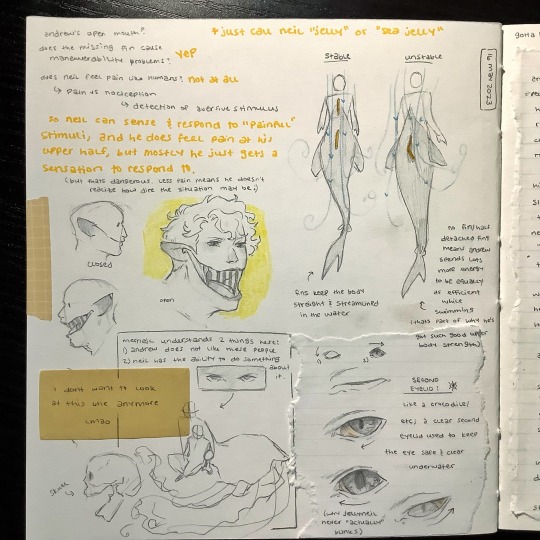 andrew's open mouth?
+ just call neil "jelly" or "sea jelly"
does the missing fin cause
maneuverability problems?
yep
does neil feel pain like humans?
not at all
↳ pain vs nociception
↳ detection of aversive stimulus
so neil can sense & respond to "painful"
stimuli, and he does feel pain at his
upper half, but mostly he just gets a
sensation to respond to.
(but thats dangerous. less pain means he doesn't
realize how dire the situation may be.)
stable
unstable
14 may 2023
closed
open
fins keep the body
straight & streamlined
in the water
no fin/half
detached fins
means andrew
spends lots
more energy
to be equally
as efficient
while
swimming
(thats part of why he's
got such good upper
body strength)
merneil understands 2 things here:
1) andrew does not like these people
2) neil has the ability to do something
about
it.
i dont want to look
at this one anymore
lmao
skull
1)
2)
second
eyelid:
like a crocodile/
etc; a clear second
eyelid used to keep
the eye safe & clear
underwater
(why jellyneil
never "actually"
blinks)
gotta